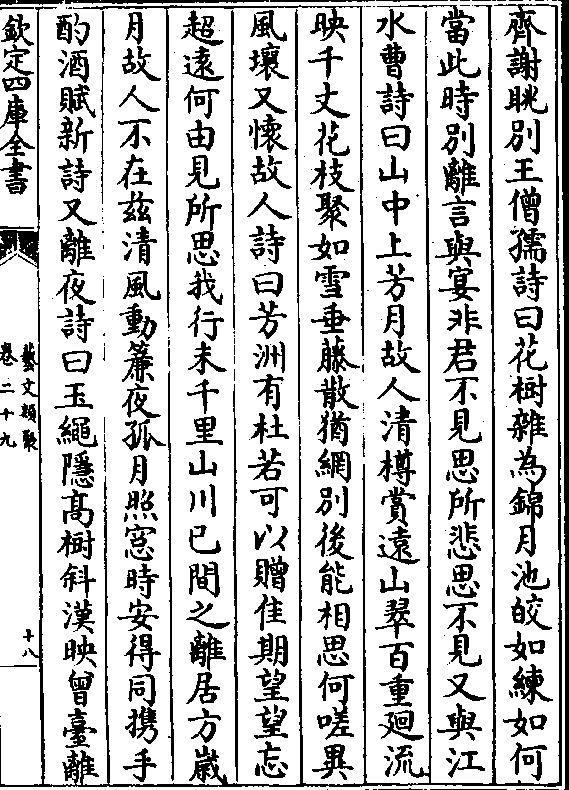 齊謝眺別王僧孺詩曰花樹雜為錦月池皎如練如何
當此時別離言與宴非君不見思所悲思不見又與江
水曹詩曰山中上芳月故人清樽賞遠山翠百重廻流
映千丈花枝聚如雪垂藤散猶網別後能相思何嗟異
風壤又懷故人詩曰芳洲有杜若可以贈佳期望望忘
超遠何由見所思我行未千里山川已間之離居方嵗
月故人不在兹清風動簾夜孤月照窓時安得同携手
酌酒賦新詩又離夜詩曰玉繩隱髙樹斜漢映曾臺離
欽定四庫全書
藝文類聚
卷二十九
十八